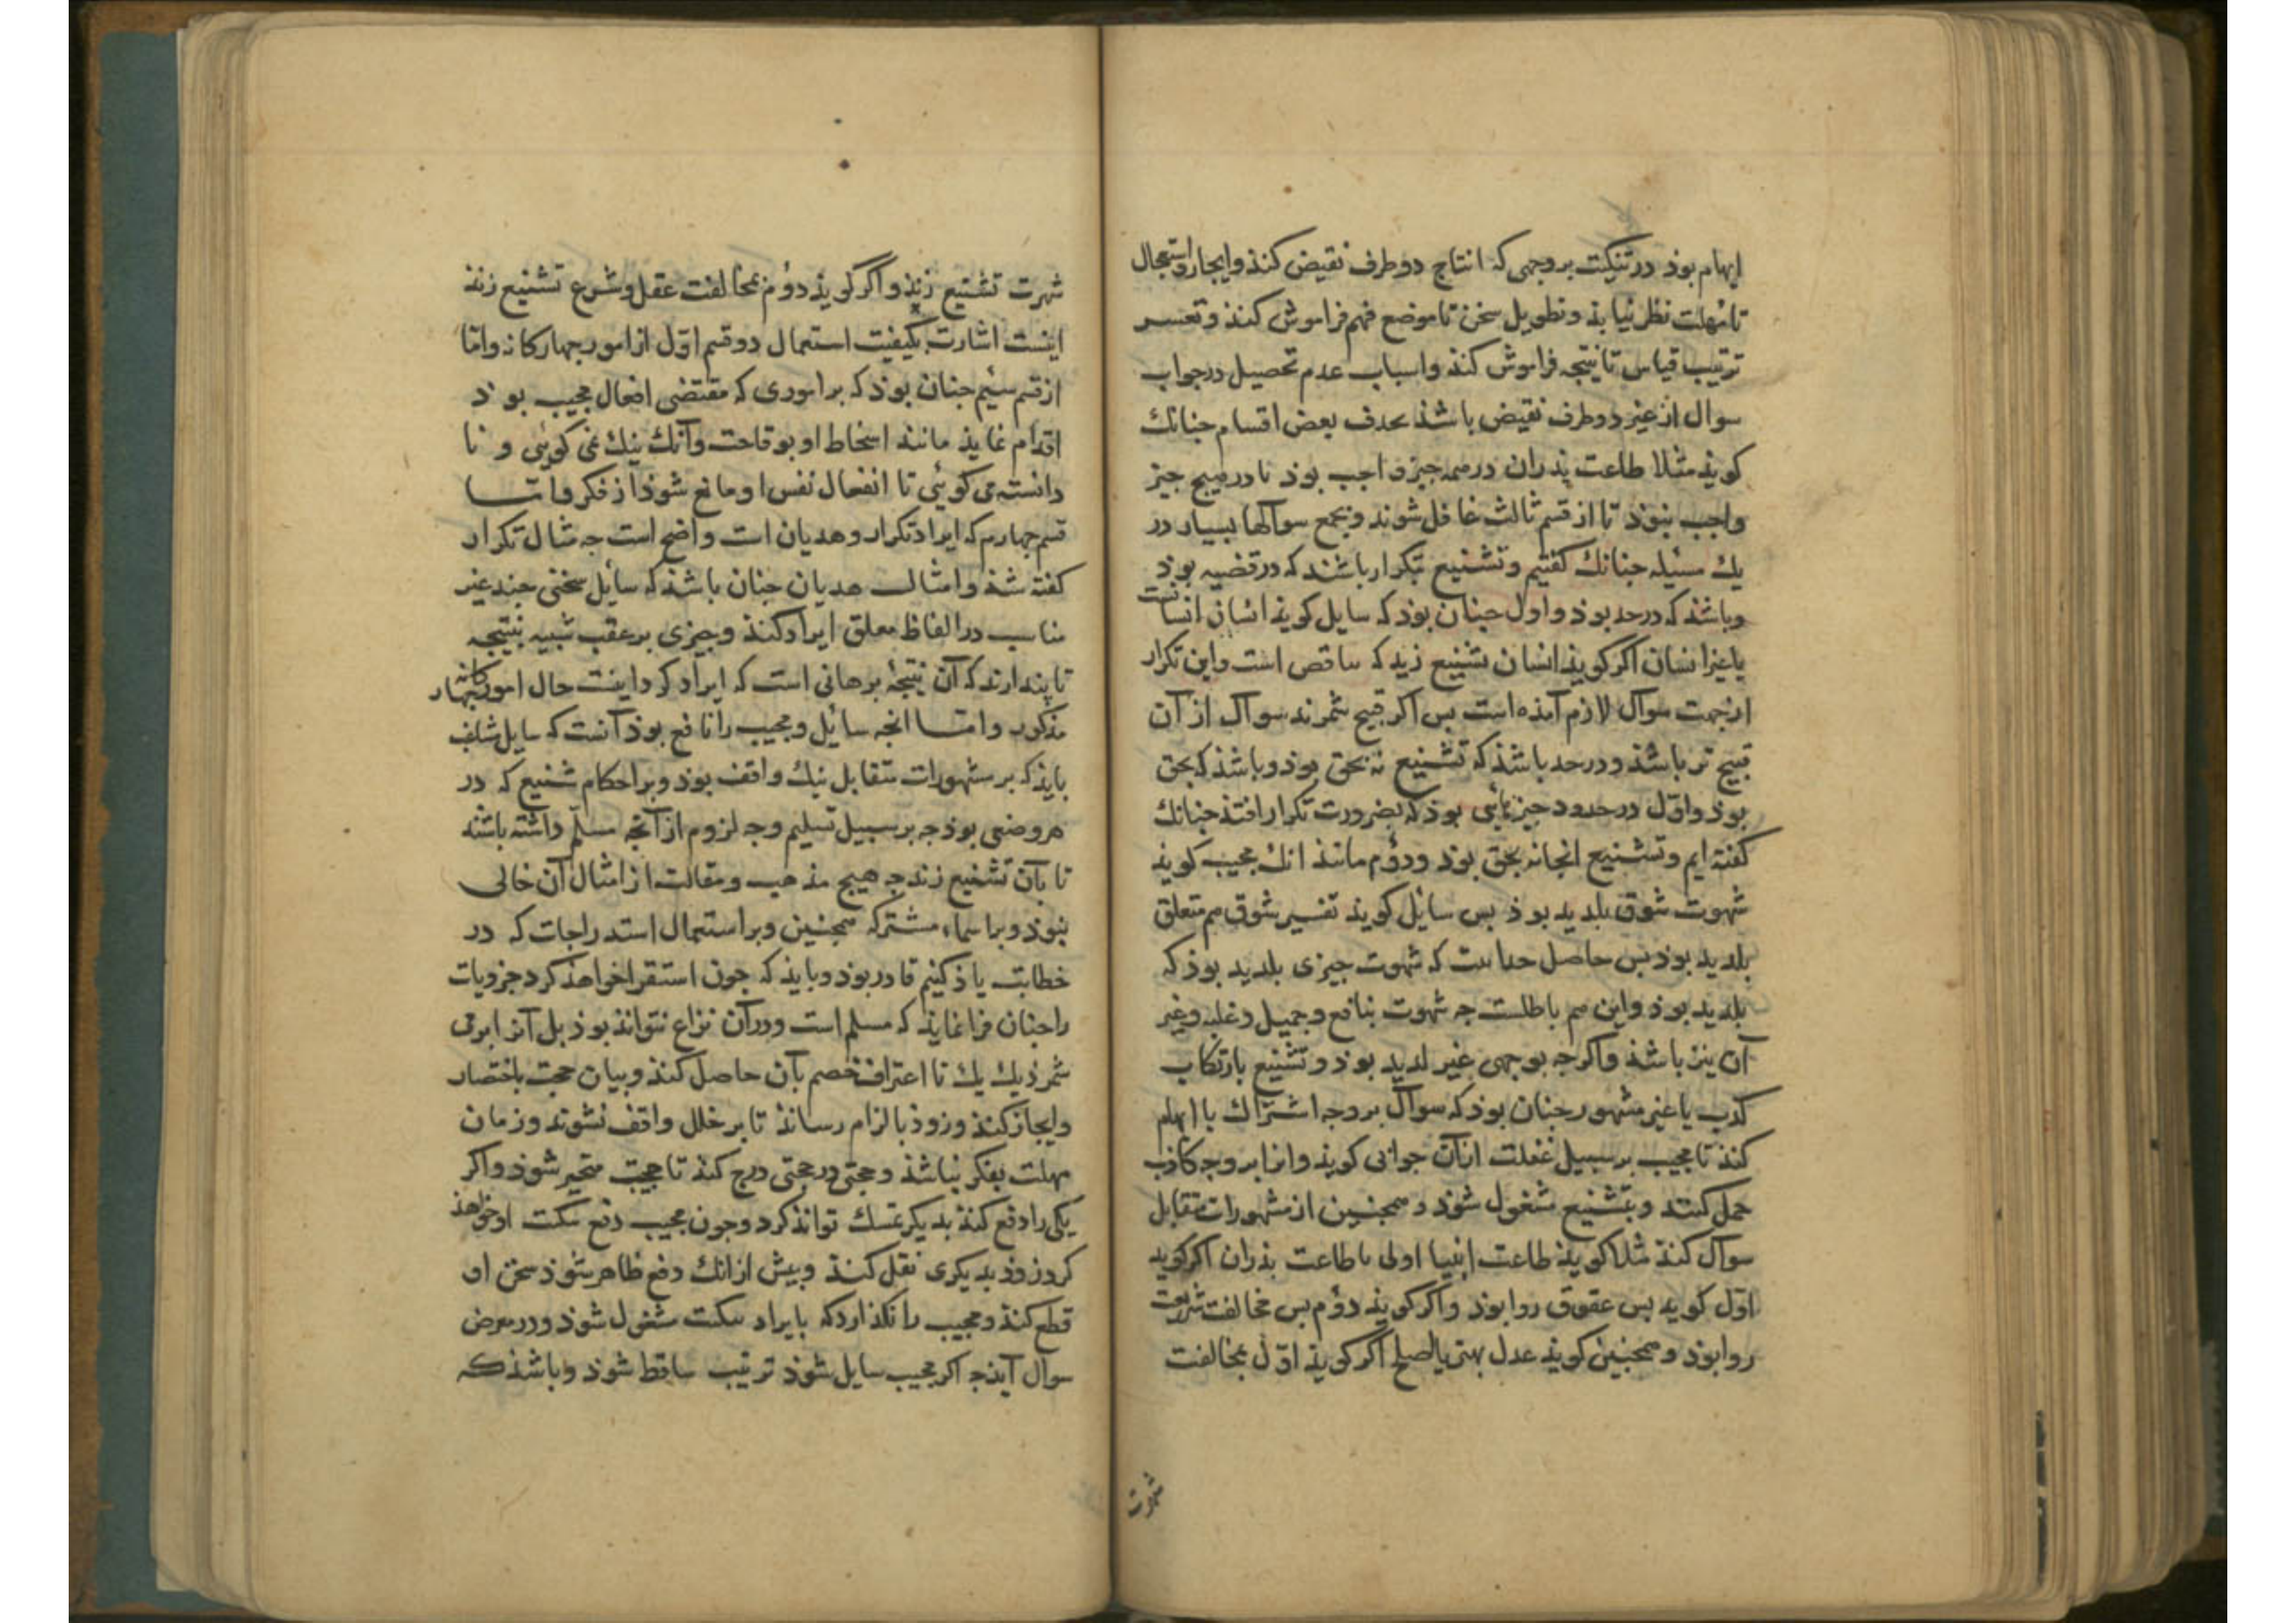 ایهام بوذ در تنکیت بروجهی که انتاج دو طرف نقیض کنذ و ایجاز و استعجال
تا مهلت نظر نیابذ و تطویل سخن تا موضع فهم فراموش کنذ و تعسر
ترتیب قیاس تا نتیجه فراموش کنذ و اسباب عدم تحصیل در جواب
سوال از غیر دو طرف نقیض باشذ بحذف بعض اقسام جنانک
کویذ مثلا طاعت پذران در همه جیز واجب بوذ یا در هیج جیز
واجب نبوذ تا از قسم ثالث غافل شوند و بجمع سوآلها بسیار در
یک مسئله جنانک کفتیم و تشنیع بتکرار باشند که در قضیه بوذ
و باشذ که در حد بوذ و اول جنان بوذ که سایل کویذ انسان انسانست
یا غیر انسان اکر کویذ انسان تشنیع زید که ناقص است و این تکرار
از جهت سوآل لازم آمذه است بس اکر قبیح شمرند سوآل از آن
قبیح تر باشذ و در حد باشذ که تشنیع نه بحق بوذ و باشذ که بحق
بوذ و اول در حدود جیزهائی بوذ که بضرورت تکرار افتذ جنانک
کفته ایم و تشنیع انجا نه بحق بوذ و دؤم مانند انک مجیب کویذ
شهوت شوق بلدید بوذ بس سایل کویذ تفسیر شوق هم متعلق
بلدید بوذ بس حاصل حد اینست که شهوت جیزی بلدید بوذ که
بلدید بوذ و این هم باطلست جه شهوت بنافع و جمیل و غلبه و غیر
آن نیز باشذ و اکرجه بوجهی غیر لدید بوذ و تشنیع بارتکاب
کذب یا غیر مشهور جنان بوذ که سوآل بر وجه اشتراک یا ایهام
کنذ تا مجیب بر سبیل غفلت از آن جوابی کویذ و انرا بر وجه کاذب
حمل کند و بتشنیع مشغول شوذ و همجنین از مشهورات متقابل
سوآل کنذ مثلا کویذ طاعت انبیا اولی یا طاعت بذران اکر کوید
اول کوید بس عقوق روا بوذ و اکر کویذ دؤم بس مخالفت شریعت
روا بوذ و همجنین کویذ عدل بهتر یا صلح اکر کویذ اول بمخالفت
شهرت
شهرت تشنیع زنذ و اکر کویذ دؤم بمخالفت عقل و شرع تشنیع زنذ
اینست اشارت بکیفیت استعمال دو قسم اول از امور جهارکانه و اما
از قسم سیم جنان بوذ که بر اموری که مقتضی انفعال مجیب بوذ
اقدام نمایذ مانند اسخاط او بوقاحت و آنک نیک نمی کوئی و نا
دانسته می کوئی تا انفعال نفس او مانع شوذ از فکر و اما
قسم جهارم که ایراد تکرار و هدیان است واضح است جه مثال تکرار
کفته شذ و امثال هدیان جنان باشذ که سایل سخنی جند غیر
مناسب در الفاظ مغلق ایراد کنذ و جیزی بر عقب شبیه بنتیجه
تا پندارند که آن نتیجهٔ برهانی است که ایراد کرد اینست حال امور جهارکانه
مذکور و اما انجه سایل و مجیب را نافع بوذ آنست که سایل مشاغب
بایذ که بر مشهورات متقابل نیک واقف بوذ و بر احکام شنیع که در
هر وضعی بوذ جه بر سبیل تسلیم و جه لزوم از آنجه مسلم داشته باشند
تا بآن تشنیع زند جه هیج مذهب و مقالت از امثال آن خالی
نبوذ و بر اسماء مشترکه همجنین و بر استعمال استدراجات که در
خطابت یاذ کنیم قادر بوذ و بایذ که جون استقرا خواهذ کرد جزویات
را جنان فرا نمایذ که مسلم است و در آن نزاع نتواند بوذ بل آنرا برمی
شمرذ یک یک تا اعتراف خصم بآن حاصل کنذ و بیان حجت باختصار
و ایجاز کنذ و زوذ بالزام رسانذ تا بر خلل واقف نشوند و زمان
مهلت بفکر نباشذ و حجتی در حجتی درج کند تا مجیب متحیر شوذ و اکر
یکی را دفع کنذ بدیکر تمسک تواند کرد و جون مجیب دفع نکت او خواهذ
کرد زوذ بدیکری نقل کنذ و بیش از انک دفع ظاهر شوذ سخن او
قطع کنذ و مجیب را نکذارد که بایراد نکت مشغول شوذ و در معرض
سوال آیذ جه اکر مجیب سایل شوذ ترتیب ساقط شوذ و باشذ که